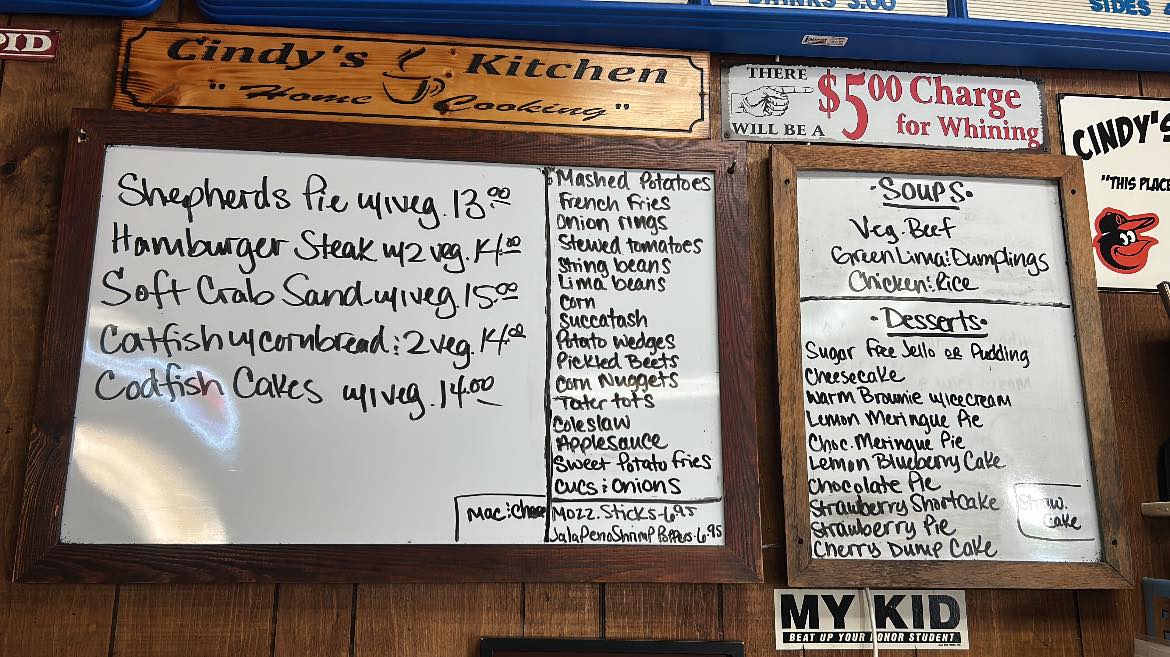 DRINKS 3.00
SIDES
PID
Cindy's Kitchen
"Home Cooking"
THERE
WILL BE A
$5.00 Charge
for Whining
CINDY'S
"THIS PLACE
Shepherds Pie w/1veg. 13.00
Hamburger Steak w/2 veg. 14.00
Soft Crab Sand w/1veg. 15.00
Catfish w/cornbread & 2 veg. 14.00
Codfish Cakes w/1veg. 14.00
Mac & Cheese
Mashed Potatoes
French Fries
Onion rings
Stewed tomatoes
String beans
Lima beans
Corn
Succatash
Potato wedges
Pickled Beets
Corn Nuggets
Tater tots
Coleslaw
Applesauce
Sweet Potato Fries
Cucs & Onions
Mozz. Sticks - 6.95
Jalapeno Shrimp Poppers - 6.95
·Soups·
Veg. Beef
Green Lima & Dumplings
Chicken & Rice
·Desserts·
Sugar Free Jello or Pudding
Cheesecake
Warm Brownie w/icecream
Lemon Meringue Pie
Choc. Meringue Pie
Lemon Blueberry Cake
Chocolate Pie
Strawberry Shortcake
Strawberry Pie
Cherry Dump Cake
Straw.
Cake
MY KID
BEAT UP YOUR HONOR STUDENT